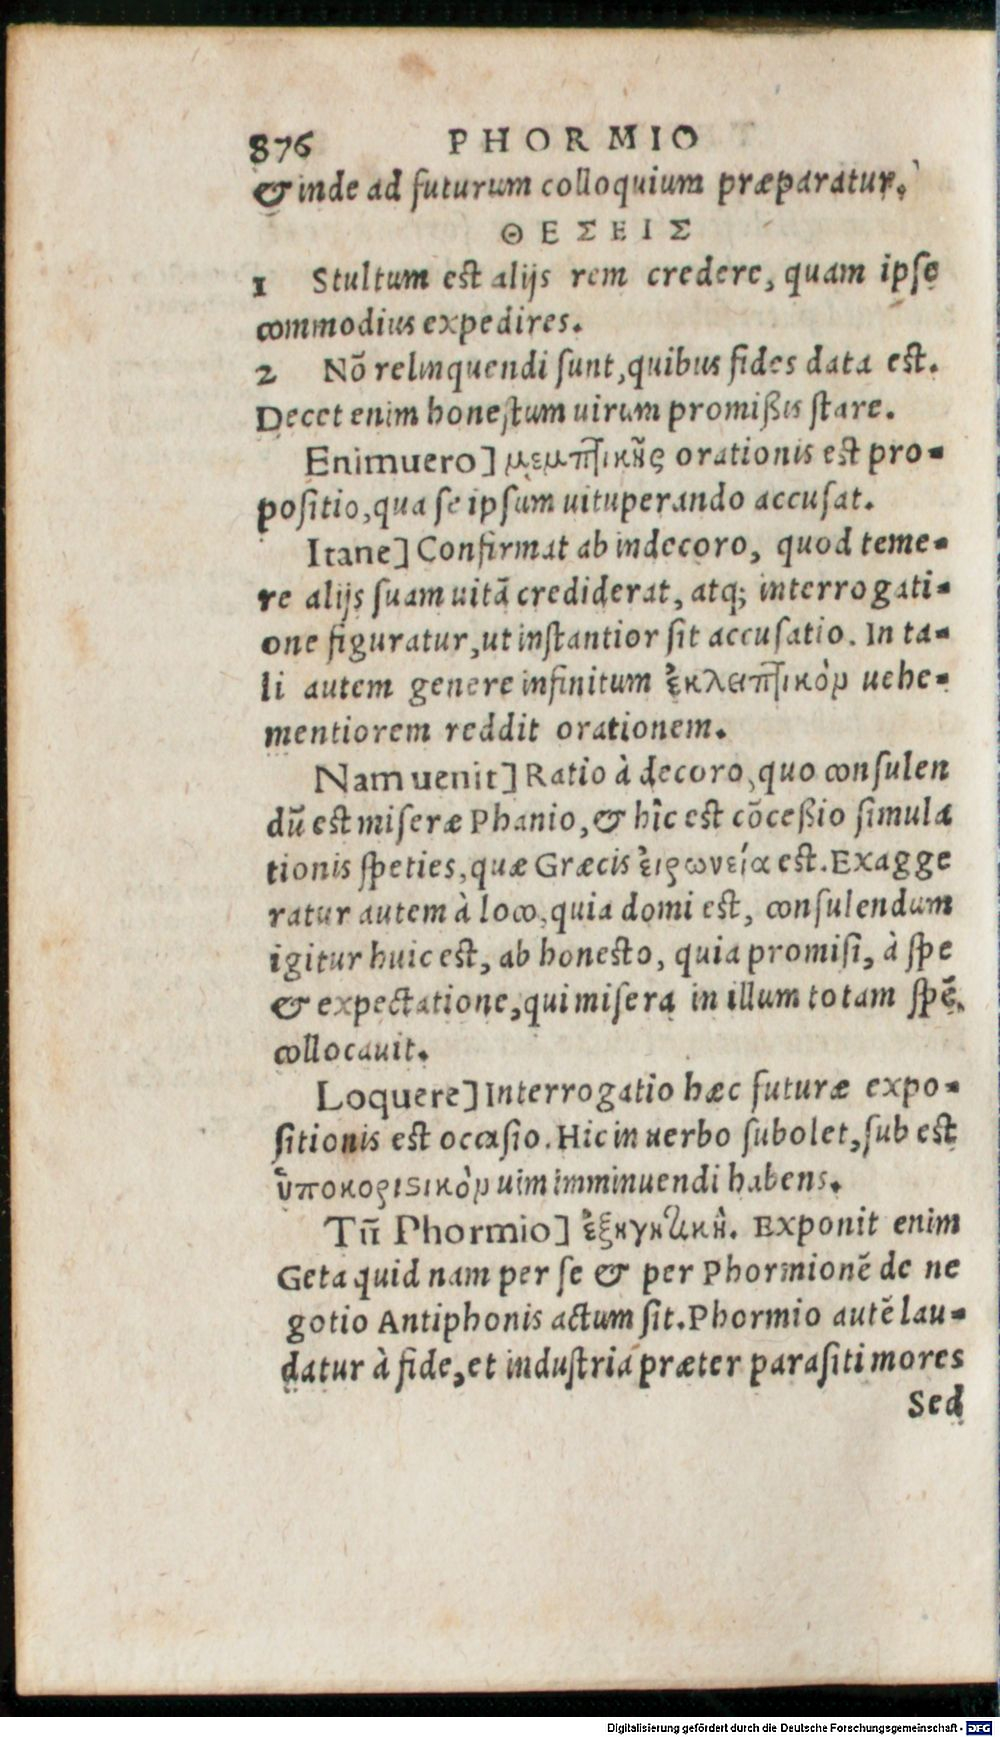 876 PHORMIO
& inde ad futurum colloquium præparatur.
ΘΕΣΕΙΣ
1 Stultum est alijs rem credere, quam ipse
commodius expedires.
2 Nõ relinquendi sunt, quibus fides data est.
Decet enim honestum uirum promißis stare.
Enimuero] μεμπτικῆς orationis est pro-
positio, qua se ipsum uituperando accusat.
Itane] Confirmat ab indecoro, quod teme-
re alijs suam uitã crediderat, atq; interrogati-
one figuratur, ut instantior sit accusatio. In ta-
li autem genere infinitum ἐκλειπτικὸν uehe-
mentiorem reddit orationem.
Nam uenit] Ratio à decoro, quo consulen
dũ est miseræ Phanio, & hîc est cõceßio simula
tionis speties, quæ Græcis εἰρωνεία est. Exagge
ratur autem à loco, quia domi est, consulendum
igitur huic est, ab honesto, quia promisi, à spe
& expectatione, qui misera in illum totam spẽ
collocauit.
Loquere] Interrogatio hæc futuræ expo-
sitionis est occasio. Hic in uerbo subolet, sub est
ὑποκοριστικὸν uim imminuendi habens.
Tũ Phormio] ἐξηγητικὴ. Exponit enim
Geta quid nam per se & per Phormionẽ de ne
gotio Antiphonis actum sit. Phormio autẽ lau-
datur à fide, et industria præter parasiti mores
Sed
Digitalisierung gefördert durch die Deutsche Forschungsgemeinschaft - DFG